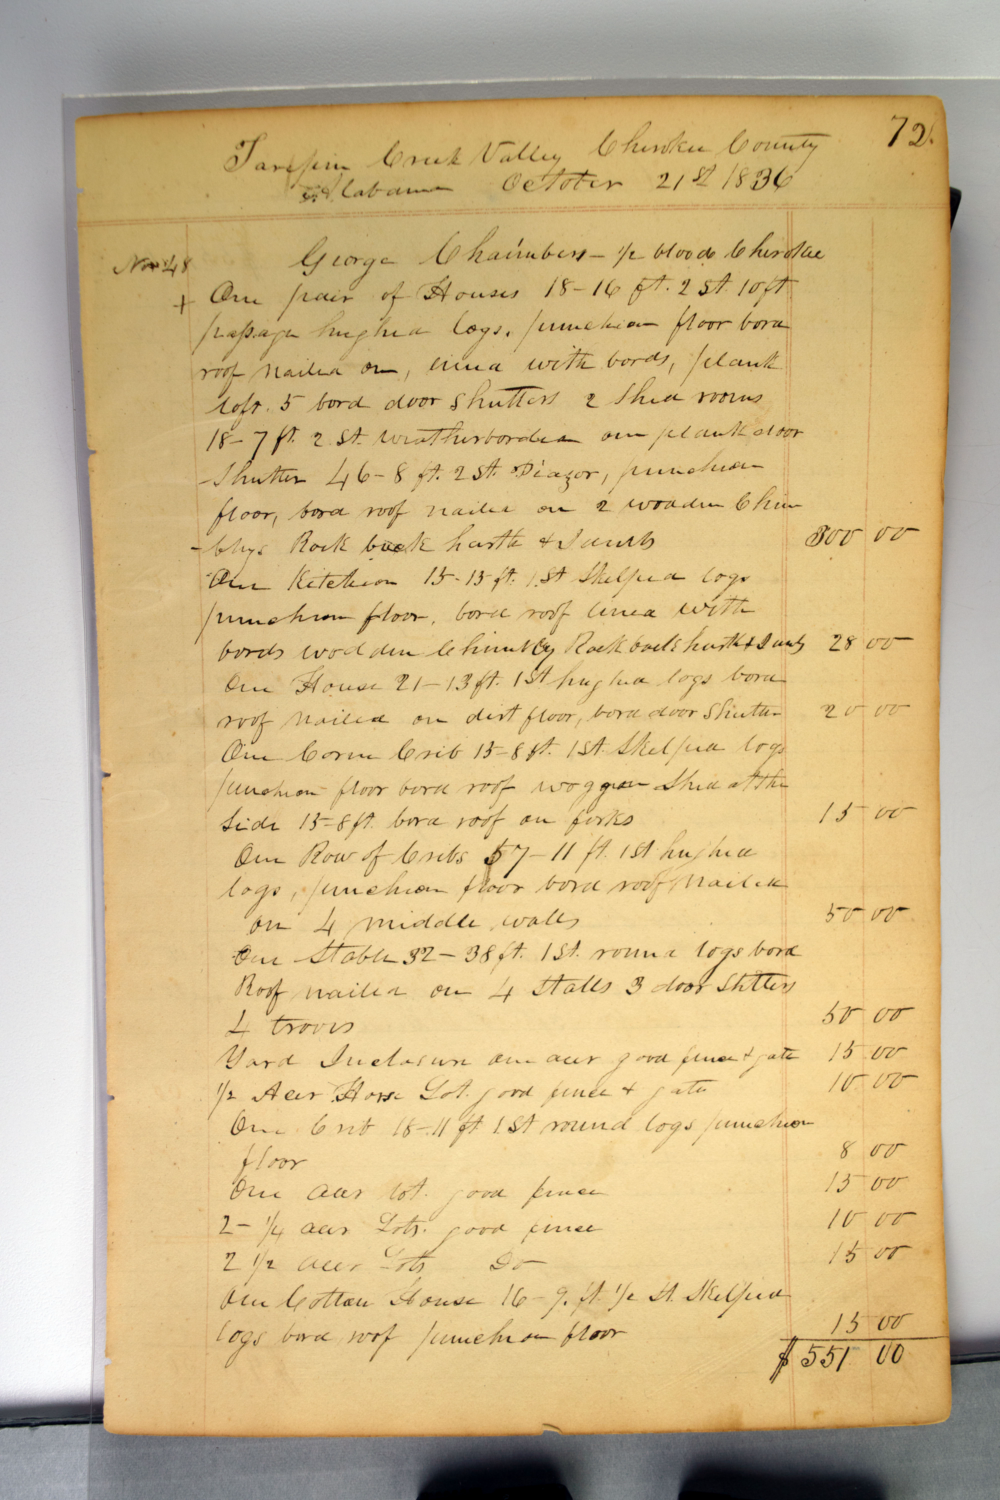 72.
Tarripin Creek Valley Cherokee County
Alabama October 21st 1836
No 48
George Chambers - 1/2 blood Cherokee
+ One pair of Houses 18-16 ft. 2 St. 10 ft
passage hughed logs, punchion floor bord
roof nailed on, lined with bords, plank
loft. 5 bord door shutters 2 Shed rooms
18-7 ft. 2 St. weatherborded one plank door
Shutter 46-8 ft. 2 St. Piazor, punchion
floor, bord roof nailed on 2 wooden Chim
-blys Rock back harth & Jambs 300 00
One Kitchion 15-15 ft. 1 St Skelped logs
punchion floor, bord roof lined with
bords wodden Chimbly Rock back harth & Jambs 28 00
One House 21-13 ft. 1 St hughed logs bord
roof nailed on dirt floor, bord door Shutter 20 00
One Corne Crib 15-8 ft. 1 St. Skelped logs
punchion floor bord roof woggon Shed at the
Side 15-8 ft. bord roof on forks 15 00
One Row of Cribs 57-11 ft. 1 St hughed
logs, punchion floor bord roof nailed
on 4 middle walls 50 00
One Stable 32-38 ft. 1 St. round logs bord
Roof nailed on 4 Stalls 3 door Shtters
4 troves 50 00
Yard Inclosure one acer good fence & gate 15 00
1/2 Acer Horse Lot. good fence & gate 10 00
One Crib 18-11 ft. 1 St round logs punchion
floor 8 00
One acer lot. good fence 15 00
2-1/4 acer Lots. good fence 10 00
2 1/2 acer Lots Do 15 00
One Cotton House 16-9. ft 1/2 St. Skelped
logs bord roof punchion floor 15 00
$ 551 00